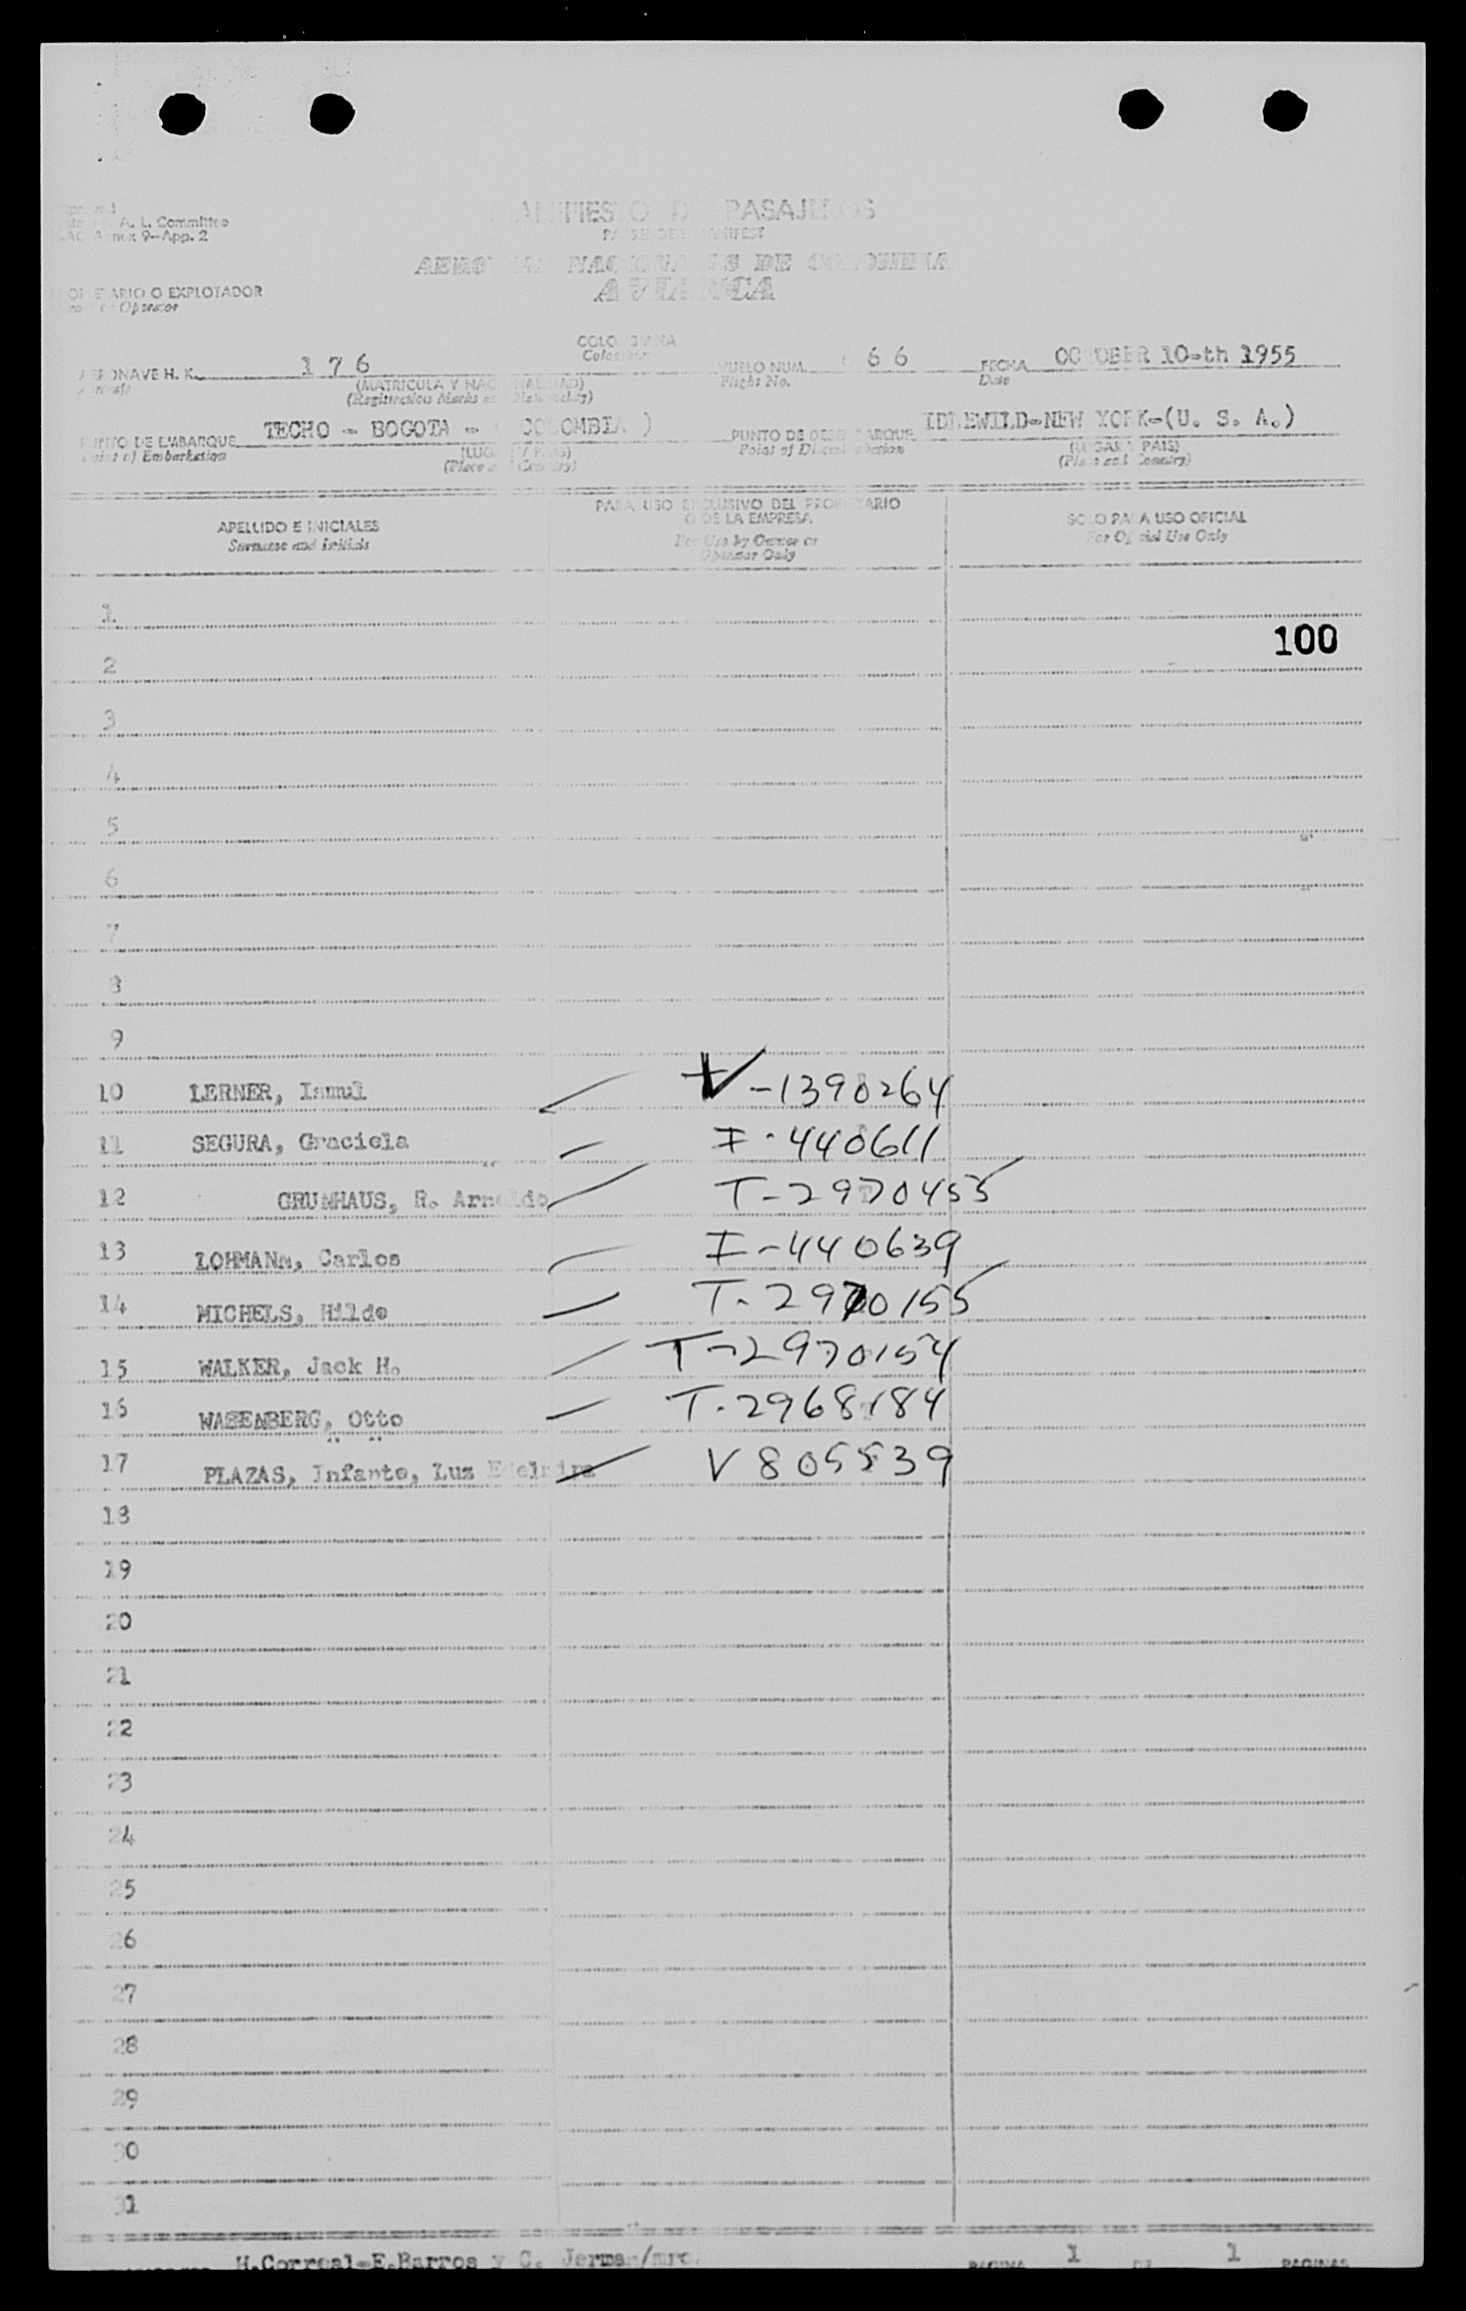 A. L. Committee
Annex 9-App. 2
MANIFIESTO DE PASAJEROS
PASSENGER MANIFEST
AEROVIAS NACIONALES DE COLOMBIA
AVIANCA
PROPIETARIO O EXPLOTADOR
Operator
COLOMBIANA
Colombian
AERONAVE H. K. 176 VUELO NUM. 66 FECHA OCTOBER 10-th 1955
Aircraft (MATRICULA Y NACIONALIDAD) Flight No. Date
(Registration Marks and Nationality)
PUNTO DE EMBARQUE TECHO - BOGOTA - ( COLOMBIA ) PUNTO DE DESEMBARQUE IDLEWILD-NEW YORK-(U. S. A.)
Point of Embarkation (LUGAR Y PAIS) Point of Disembarkation (LUGAR Y PAIS)
(Place and Country) (Place and Country)
APELLIDO E INICIALES PARA USO EXCLUSIVO DEL PROPIETARIO O DE LA EMPRESA SOLO PARA USO OFICIAL
Surname and Initials For Use by Owner or Operator Only For Official Use Only
1
100
2
3
4
5
6
7
8
9
10 LERNER, V-1390264
11 SEGURA, Graciela I-440611
12 GRUNHAUS, R. Arnoldo T-2970455
13 LOHMANN, Carlos I-440639
14 MICHELS, Hilde T-2970155
15 WALKER, Jack H. T-2970154
16 WASENBERG, Otto T-2968184
17 PLAZAS, Infante, Luz Edelmira V 805539
18
19
20
21
22
23
24
25
26
27
28
29
30
31
H.Correal-E.Barros y C. PAGINA 1 DE 1 PAGINAS